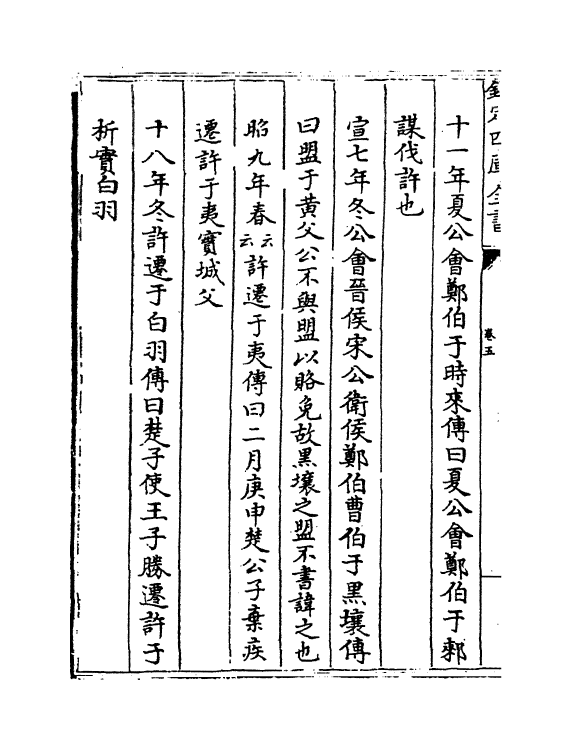 欽定四庫全書
卷五
十一年夏公會鄭伯于時來傳曰夏公會鄭伯于郲
謀伐許也
宣七年冬公會晉侯宋公衛侯鄭伯曹伯于黑壤傳
曰盟于黃父公不與盟以賂免故黑壤之盟不書諱之也
昭九年春云云許遷于夷傳曰二月庚申楚公子棄疾
遷許于夷實城父
十八年冬許遷于白羽傳曰楚子使王子勝遷許于
析實白羽